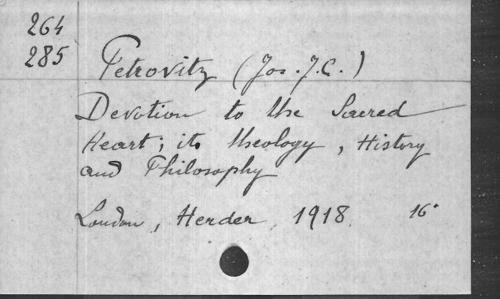 264
285
Petrovitz (Jos. J. C.)
Devotion to the Sacred
Heart; its theology, History
and Philosophy
London, Herder, 1918. 16°